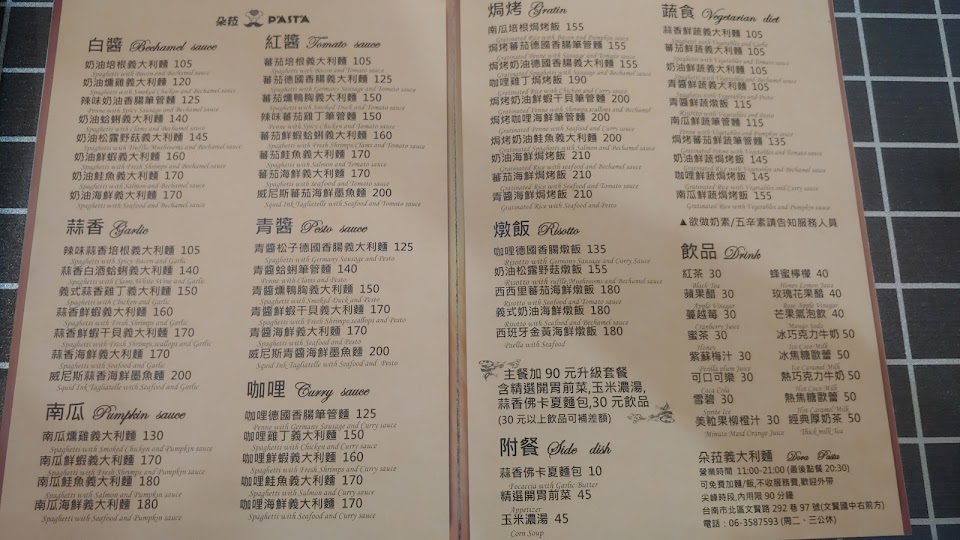 朵菈 PASTA
白醬 Bechamel sauce
奶油培根義大利麵 105
Spaghetti with Bacon and Bechamel sauce
奶油燻雞義大利麵 120
Spaghetti with Smoked Chicken and Bechamel sauce
辣味奶油香腸筆管麵 125
Penne with Spicy Sausage and Bechamel sauce
奶油蛤蜊義大利麵 140
Spaghetti with Clams and Bechamel sauce
奶油松露野菇義大利麵 145
Spaghetti with Truffle Mushrooms and Bechamel sauce
奶油鮮蝦義大利麵 160
Spaghetti with Fresh Shrimps and Bechamel sauce
奶油鮭魚義大利麵 170
Spaghetti with Salmon and Bechamel sauce
奶油海鮮義大利麵 170
Spaghetti with Seafood and Bechamel sauce
蒜香 Garlic
辣味蒜香培根義大利麵 105
Spaghetti with Spicy Bacon and Garlic
蒜香白酒蛤蜊義大利麵 140
Spaghetti with Clams White Wine and Garlic
義式蒜香雞丁義大利麵 150
Spaghetti with Chicken and Garlic
蒜香鮮蝦義大利麵 160
Spaghetti with Fresh Shrimps and Garlic
蒜香鮮蝦干貝義大利麵 170
Spaghetti with Fresh Shrimps,scallops and Garlic
蒜香海鮮義大利麵 170
Spaghetti with Seafood and Garlic
威尼斯蒜香海鮮墨魚麵 200
Squid Ink Tagliatelle with Seafood and Garlic
南瓜 Pumpkin sauce
南瓜燻雞義大利麵 130
Spaghetti with Smoked Chicken and Pumpkin sauce
南瓜鮮蝦義大利麵 170
Spaghetti with Fresh Shrimps and Pumpkin sauce
南瓜鮭魚義大利麵 180
Spaghetti with Salmon and Pumpkin sauce
南瓜海鮮義大利麵 180
Spaghetti with Seafood and Pumpkin sauce
紅醬 Tomato sauce
蕃茄培根義大利麵 105
Spaghetti with Bacon and Tomato sauce
蕃茄德國香腸義大利麵 125
Spaghetti with Germany Sausage and Tomato sauce
蕃茄燻鴨胸義大利麵 150
Spaghetti with Smoked Duck and Tomato sauce
辣味蕃茄雞丁筆管麵 150
Penne with Spicy Chicken and Tomato sauce
蕃茄鮮蝦蛤蜊義大利麵 160
Spaghetti with Fresh Shrimps,Clams and Tomato sauce
蕃茄鮭魚義大利麵 170
Spaghetti with Salmon and Tomato sauce
蕃茄海鮮義大利麵 170
Spaghetti with Seafood and Tomato sauce
威尼斯蕃茄海鮮墨魚麵 200
Squid Ink Tagliatelle with Seafood and Tomato sauce
青醬 Pesto sauce
青醬松子德國香腸義大利麵 125
Spaghetti with Germany Sausage and Pesto
青醬蛤蜊筆管麵 140
Penne with Clams and Pesto
青醬燻鴨胸義大利麵 150
Spaghetti with Smoked Duck and Pesto
青醬鮮蝦干貝義大利麵 170
Spaghetti with Fresh Shrimps,scallops and Pesto
青醬海鮮義大利麵 170
Spaghetti with Seafood and Pesto
威尼斯青醬海鮮墨魚麵 200
Squid Ink Tagliatelle with Seafood and Pesto
咖哩 Curry sauce
咖哩德國香腸筆管麵 125
Penne with Germany Sausage and Curry sauce
咖哩雞丁義大利麵 150
Spaghetti with Chicken and Curry sauce
咖哩鮮蝦義大利麵 160
Spaghetti with Fresh Shrimps and Curry sauce
咖哩鮭魚義大利麵 170
Spaghetti with Salmon and Curry sauce
咖哩海鮮義大利麵 170
Spaghetti with Seafood and Curry sauce
焗烤 Gratin
南瓜培根焗烤飯 155
Gratinated Rice with Bacon and Pumpkin sauce
焗烤蕃茄德國香腸筆管麵 155
焗烤奶油德國香腸義大利麵 155
咖哩雞丁焗烤飯 190
Gratinated Rice with Chicken and Curry sauce
焗烤奶油鮮蝦干貝筆管麵 200
焗烤咖哩海鮮筆管麵 200
Gratinated Penne with Seafood and Curry sauce
焗烤奶油鮭魚義大利麵 200
奶油海鮮焗烤飯 210
Gratinated Rice with seafood and Bechamel sauce
蕃茄海鮮焗烤飯 210
Gratinated Rice with Seafood and Tomato sauce
青醬海鮮焗烤飯 210
Gratinated Rice with Seafood and Pesto
燉飯 Risotto
咖哩德國香腸燉飯 135
Risotto with Germany Sausage and Curry Sauce
奶油松露野菇燉飯 155
Risotto with truffle Mushrooms and Bechamel sauce
西西里蕃茄海鮮燉飯 180
Risotto with Seafood and Tomato sauce
義式奶油海鮮燉飯 180
Risotto with Seafood and Bechamel sauce
西班牙金黃海鮮燉飯 180
Paella with Seafood
主餐加 90 元升級套餐
含精選開胃前菜,玉米濃湯,
蒜香佛卡夏麵包,30 元飲品
(30 元以上飲品可補差額)
附餐 Side dish
蒜香佛卡夏麵包 10
Focaccia with Garlic Butter
精選開胃前菜 45
Appetizer
玉米濃湯 45
Corn Soup
蔬食 Vegetarian diet
蒜香鮮蔬義大利麵 105
Spaghetti with Vegetables and Garlic
蕃茄鮮蔬義大利麵 105
奶油鮮蔬義大利麵 105
青醬鮮蔬義大利麵 105
青醬鮮蔬燉飯 115
南瓜鮮蔬筆管麵 115
焗烤蕃茄鮮蔬筆管麵 135
奶油鮮蔬焗烤飯 145
咖哩鮮蔬焗烤飯 145
南瓜鮮蔬焗烤飯 155
▲欲做奶素/五辛素請告知服務人員
飲品 Drink
紅茶 30
Black Tea
蘋果醋 30
Apple Vinegar
蔓越莓 30
Cranberry Juice
蜜茶 30
Honey
紫蘇梅汁 30
Perilla plum Juice
可口可樂 30
Coca Cola
雪碧 30
Sprite Ice
美粒果柳橙汁 30
Minute Maid Orange Juice
蜂蜜檸檬 40
Honey Lemon Juice
玫瑰花果醋 40
Rose Apple Vinegar
芒果氣泡飲 40
Mango Soda
冰巧克力牛奶 50
冰焦糖歐蕾 50
Ice Caramel Milk
熱巧克力牛奶 50
熱焦糖歐蕾 50
Hot Caramel Milk
經典厚奶茶 50
Thick milk Tea
朵菈義大利麵 Dora Pasta
營業時間 11:00-21:00 (最後點餐 20:30)
可免費加麵/飯,不收服務費,歡迎外帶
尖峰時段,內用限 90 分鐘
台南市北區文賢路 292 巷 97 號(文賢國中右前方)
電話：06-3587593 (周二、三公休)